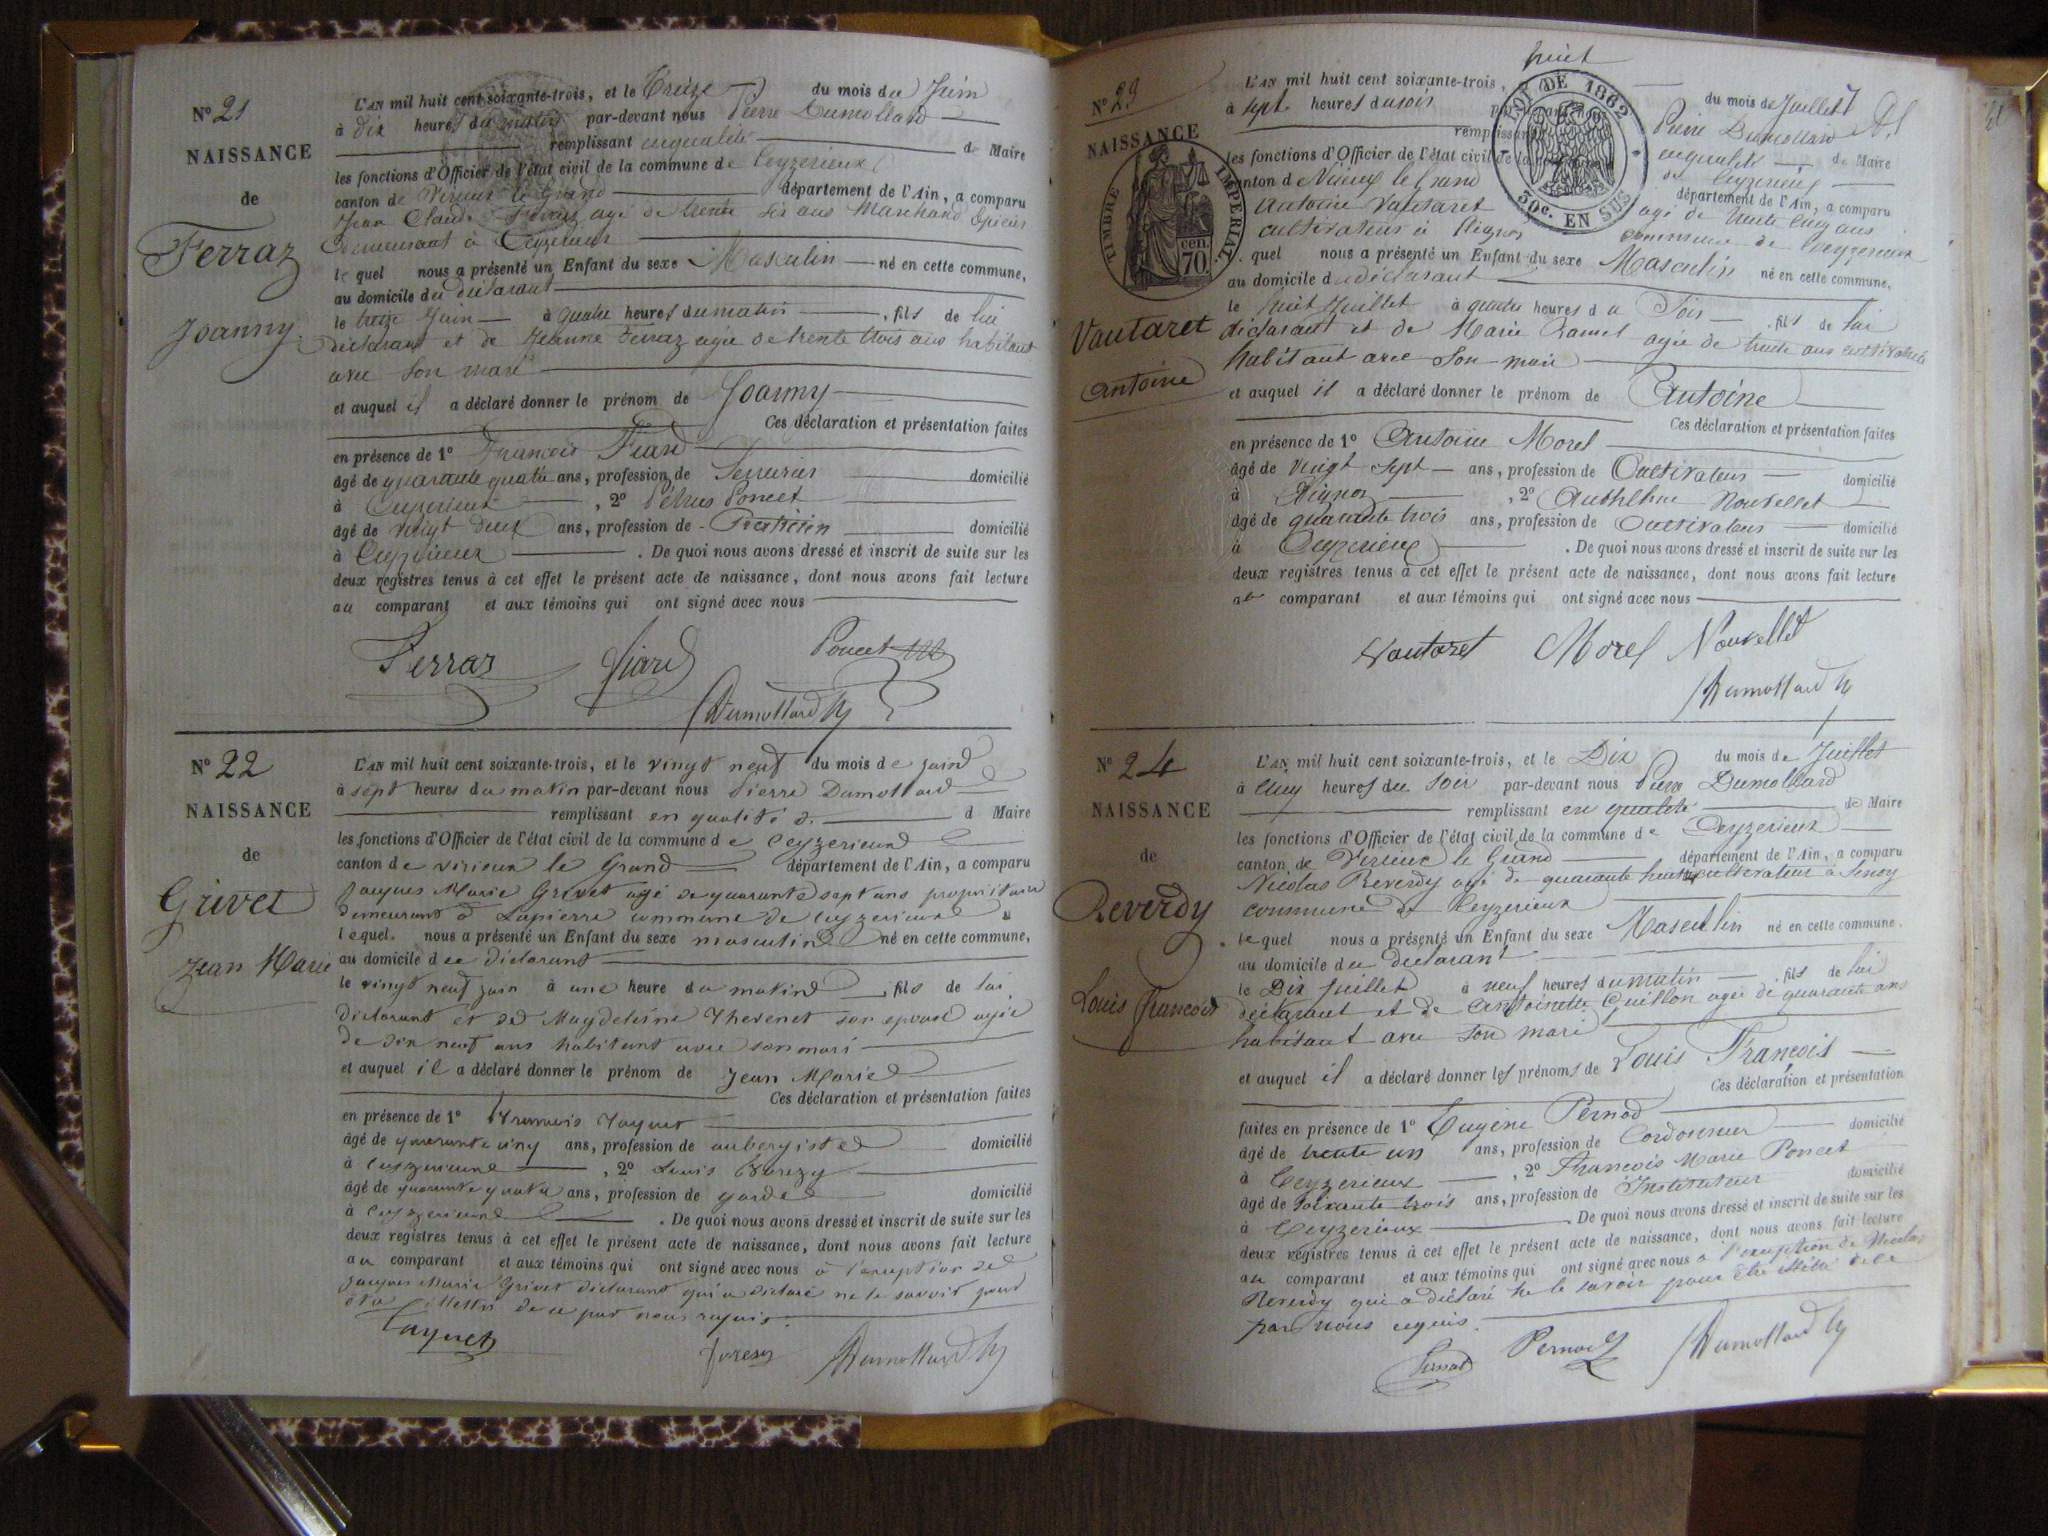 N° 21
NAISSANCE
de
Ferraz
Joanny
L'AN mil huit cent soixante-trois, et le Treize du mois de Juin
à dix heures du matin par-devant nous Pierre Dumollard
remplissant en qualité de Maire
les fonctions d'Officier de l'état civil de la commune de Ceyzerieux
canton de Virieux le Grand département de l'Ain, a comparu
Jean Claude Ferraz agé de trente six ans Marchand Epicier
demeurant à Ceyzerieux
le quel nous a présenté un Enfant du sexe Masculin né en cette commune,
au domicile du déclarant
le treize Juin à quatre heures du matin, fils de lui
déclarant et de Jeanne Ferraz agée de trente trois ans habitant
avec son mari
et auquel il a déclaré donner le prénom de Joanny
Ces déclaration et présentation faites
en présence de 1° François Fiard
âgé de quarante quatre ans, profession de Serrurier domicilié
à Ceyzerieux, 2° Pétrus Poncet
âgé de vingt deux ans, profession de Praticien domicilié
à Ceyzerieux. De quoi nous avons dressé et inscrit de suite sur les
deux registres tenus à cet effet le présent acte de naissance, dont nous avons fait lecture
au comparant et aux témoins qui ont signé avec nous
Ferraz Fiard Poncet
Dumollard
N° 22
NAISSANCE
de
Grivet
Jean Marie
L'AN mil huit cent soixante-trois, et le vingt neuf du mois de juin
à sept heures du matin par-devant nous Pierre Dumollard
remplissant en qualité de d Maire
les fonctions d'Officier de l'état civil de la commune de Ceyzerieux
canton de virieux le Grand département de l'Ain, a comparu
Jacques Marie Grivet agé de quarante sept ans propriétaire
demeurant à Lapierre commune de ceyzerieux
lequel nous a présenté un Enfant du sexe masculin né en cette commune,
au domicile du diclarant
le vingt neuf juin à une heure du matin, fils de lui
diclarant et de Magdeleine Thevenet son epouse agée
de dix neuf ans habitant avec son mari
et auquel il a déclaré donner le prénom de Jean Marie
Ces déclaration et présentation faites
en présence de 1° François Jayuet
âgé de quarante cinq ans, profession de aubergiste domicilié
à Ceyzerieux, 2° Louis
âgé de quarante quatre ans, profession de garde domicilié
à ceyzerieux. De quoi nous avons dressé et inscrit de suite sur les
deux registres tenus à cet effet le présent acte de naissance, dont nous avons fait lecture
au comparant et aux témoins qui ont signé avec nous à l'exception de
Jacques Marie Grivet diclarant qui a diclaré ne le savoir pour
être illettré de ce par nous requis.
Dumollard
N° 23
NAISSANCE
TIMBRE IMPERIAL
70 cen.
Vautaret
Antoine
huit
L'AN mil huit cent soixante-trois, du mois de Juillet
à sept heures du soir par-devant nous Pierre Dumollard
remplissant en qualité de Maire
les fonctions d'Officier de l'état civil de la commune de Ceyzerieux
canton de Virieux le Grand département de l'Ain, a comparu
Antoine Vautaret agé de trente cinq ans
cultivateur à Aignoz commune de Ceyzerieux
quel nous a présenté un Enfant du sexe Masculin né en cette commune,
au domicile du déclarant
le huit Juillet à quatre heures du Soir, fils de lui
déclarant et de Marie agée de trente ans cultivatrice
habitant avec son mari
et auquel il a déclaré donner le prénom de Antoine
Ces déclaration et présentation faites
en présence de 1° Antoine Morel
âgé de vingt sept ans, profession de Cultivateur domicilié
à Aignoz, 2° Anthelme Nouvellet
âgé de quarante trois ans, profession de Cultivateur domicilié
à Ceyzerieux. De quoi nous avons dressé et inscrit de suite sur les
deux registres tenus à cet effet le présent acte de naissance, dont nous avons fait lecture
au comparant et aux témoins qui ont signé avec nous
Vautaret Morel Nouvellet
Dumollard
LOI DE 1862
30c. EN SUS
N° 24
NAISSANCE
de
Reverdy
Louis François
L'AN mil huit cent soixante-trois, et le Dix du mois de Juillet
à Cinq heures du soir par-devant nous Pierre Dumollard
remplissant en qualité de Maire
les fonctions d'Officier de l'état civil de la commune de Ceyzerieux
canton de Virieux le Grand département de l'Ain, a comparu
Nicolas Reverdy agé de quarante huit cultivateur à
commune de Ceyzerieux
le quel nous a présenté un Enfant du sexe Masculin né en cette commune.
au domicile du déclarant
le Dix juillet à neuf heures du matin, fils de lui
déclarant et de Antoinette Guillon agée de quarante ans
habitant avec son mari
et auquel il a déclaré donner les prénoms de Louis François
Ces déclaration et présentation
faites en présence de 1° Eugène Pernod
âgé de trente un ans, profession de Cordonnier domicilié
à Ceyzerieux, 2° François Marie Poncet
âgé de soixante trois ans, profession de Instituteur domicilié
à Ceyzerieux. De quoi nous avons dressé et inscrit de suite sur les
deux registres tenus à cet effet le présent acte de naissance, dont nous avons fait lecture
au comparant et aux témoins qui ont signé avec nous à l'exception de Nicolas
Reverdy qui a déclaré ne le savoir pour être illétré de ce
par nous requis.
Pernod Dumollard